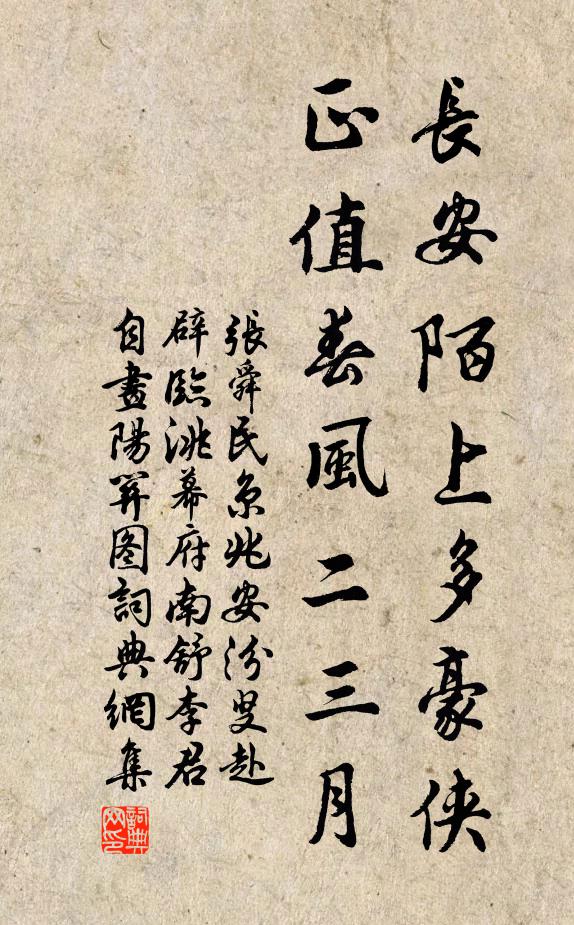 長安陌上多豪俠
正值春風二三月
張舜民京兆安汾叟赴
辟臨洮幕府南舒李君
自畫陽關圖詞典網集
詞典
网印